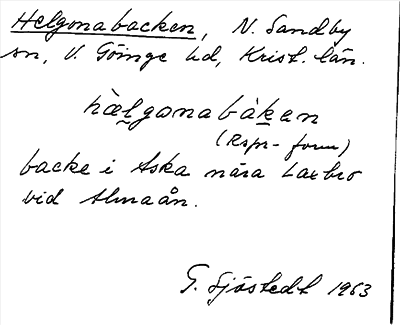 Helgonabacken, N. Sandby
sn, V. Göinge hd, Krist. län.
hælgonabàken
(Rspr-form)
backe i Aska nära Laxbro
vid Almaån.
G. Sjöstedt 1963